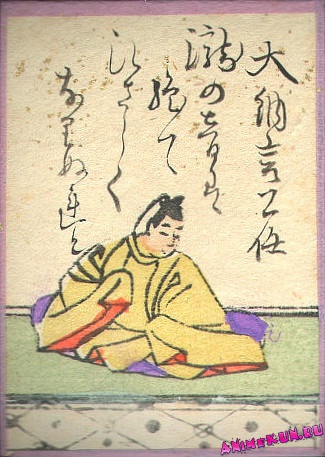 大納言公任
瀧の音は
絶て
ひさしく
なりぬれと
ANiMeKUN.RU